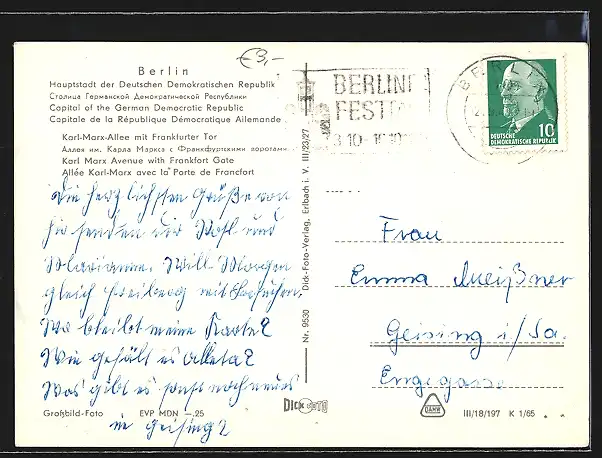 €3,-
Berlin
Hauptstadt der Deutschen Demokratischen Republik
Столица Германской Демократической Республики
Capital of the German Democratic Republic
Capitale de la République Démocratique Allemande
Karl-Marx-Allee mit Frankfurter Tor
Аллея им. Карла Маркса с Франкфуртскими воротами
Karl Marx Avenue with Frankfort Gate
Allée Karl-Marx avec la Porte de Francfort
Die herzlichsten Grüße von
hir senden dir Rolf und
Marianne. Will Morgen
gleich Freiberg mit besuchen.
Wo bleibt meine Karte?
Wie gefält es
Was gibt es sonst noch neues
in Geising?
Großbild-Foto EVP MDN —.25
DICK FOTO
Nr. 9530 Dick-Foto-Verlag, Erlbach i. V. III/23/27
BERLINE
FEST
3.10.-
BE
10
DEUTSCHE
DEMOKRATISCHE REPUBLIK
Frau
Emma Meißner
Geising i/Sa.
Engegasse
DAMW
III/18/197 K 1/65